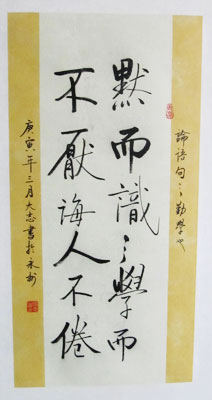 論語句：勤學也
默而識：學而
不厭誨人不倦
庚寅年三月大志書於永州